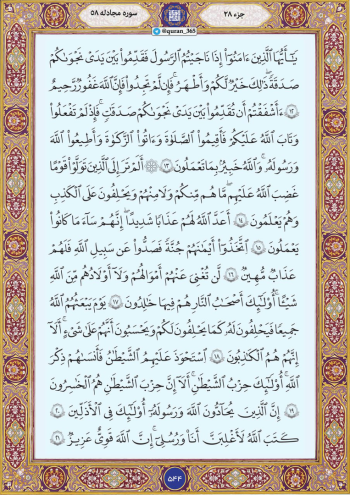 جزء ۲۸
@quran_365
سوره مجادله ۵۸
يَـٰٓأَيُّهَا ٱلَّذِينَ ءَامَنُوٓا۟ إِذَا نَـٰجَيْتُمُ ٱلرَّسُولَ فَقَدِّمُوا۟ بَيْنَ يَدَىْ نَجْوَىٰكُمْ
صَدَقَةً ۚ ذَٰلِكَ خَيْرٌ لَّكُمْ وَأَطْهَرُ ۚ فَإِن لَّمْ تَجِدُوا۟ فَإِنَّ ٱللَّهَ غَفُورٌ رَّحِيمٌ
۝١٢ ءَأَشْفَقْتُمْ أَن تُقَدِّمُوا۟ بَيْنَ يَدَىْ نَجْوَىٰكُمْ صَدَقَـٰتٍ ۚ فَإِذْ لَمْ تَفْعَلُوا۟
وَتَابَ ٱللَّهُ عَلَيْكُمْ فَأَقِيمُوا۟ ٱلصَّلَوٰةَ وَءَاتُوا۟ ٱلزَّكَوٰةَ وَأَطِيعُوا۟ ٱللَّهَ
وَرَسُولَهُۥ ۚ وَٱللَّهُ خَبِيرٌۢ بِمَا تَعْمَلُونَ ۝١٣ ۞ أَلَمْ تَرَ إِلَى ٱلَّذِينَ تَوَلَّوْا۟ قَوْمًا
غَضِبَ ٱللَّهُ عَلَيْهِم مَّا هُم مِّنكُمْ وَلَا مِنْهُمْ وَيَحْلِفُونَ عَلَى ٱلْكَذِبِ
وَهُمْ يَعْلَمُونَ ۝١٤ أَعَدَّ ٱللَّهُ لَهُمْ عَذَابًا شَدِيدًا ۖ إِنَّهُمْ سَآءَ مَا كَانُوا۟
يَعْمَلُونَ ۝١٥ ٱتَّخَذُوٓا۟ أَيْمَـٰنَهُمْ جُنَّةً فَصَدُّوا۟ عَن سَبِيلِ ٱللَّهِ فَلَهُمْ
عَذَابٌ مُّهِينٌ ۝١٦ لَّن تُغْنِىَ عَنْهُمْ أَمْوَٰلُهُمْ وَلَآ أَوْلَـٰدُهُم مِّنَ ٱللَّهِ
شَيْـًٔا ۚ أُو۟لَـٰٓئِكَ أَصْحَـٰبُ ٱلنَّارِ ۖ هُمْ فِيهَا خَـٰلِدُونَ ۝١٧ يَوْمَ يَبْعَثُهُمُ ٱللَّهُ
جَمِيعًا فَيَحْلِفُونَ لَهُۥ كَمَا يَحْلِفُونَ لَكُمْ ۖ وَيَحْسَبُونَ أَنَّهُمْ عَلَىٰ شَىْءٍ ۚ أَلَآ
إِنَّهُمْ هُمُ ٱلْكَـٰذِبُونَ ۝١٨ ٱسْتَحْوَذَ عَلَيْهِمُ ٱلشَّيْطَـٰنُ فَأَنسَىٰهُمْ ذِكْرَ
ٱللَّهِ ۚ أُو۟لَـٰٓئِكَ حِزْبُ ٱلشَّيْطَـٰنِ ۚ أَلَآ إِنَّ حِزْبَ ٱلشَّيْطَـٰنِ هُمُ ٱلْخَـٰسِرُونَ
۝١٩ إِنَّ ٱلَّذِينَ يُحَآدُّونَ ٱللَّهَ وَرَسُولَهُۥٓ أُو۟لَـٰٓئِكَ فِى ٱلْأَذَلِّينَ ۝٢٠
كَتَبَ ٱللَّهُ لَأَغْلِبَنَّ أَنَا۠ وَرُسُلِىٓ ۚ إِنَّ ٱللَّهَ قَوِىٌّ عَزِيزٌ ۝٢١
۵۴۴